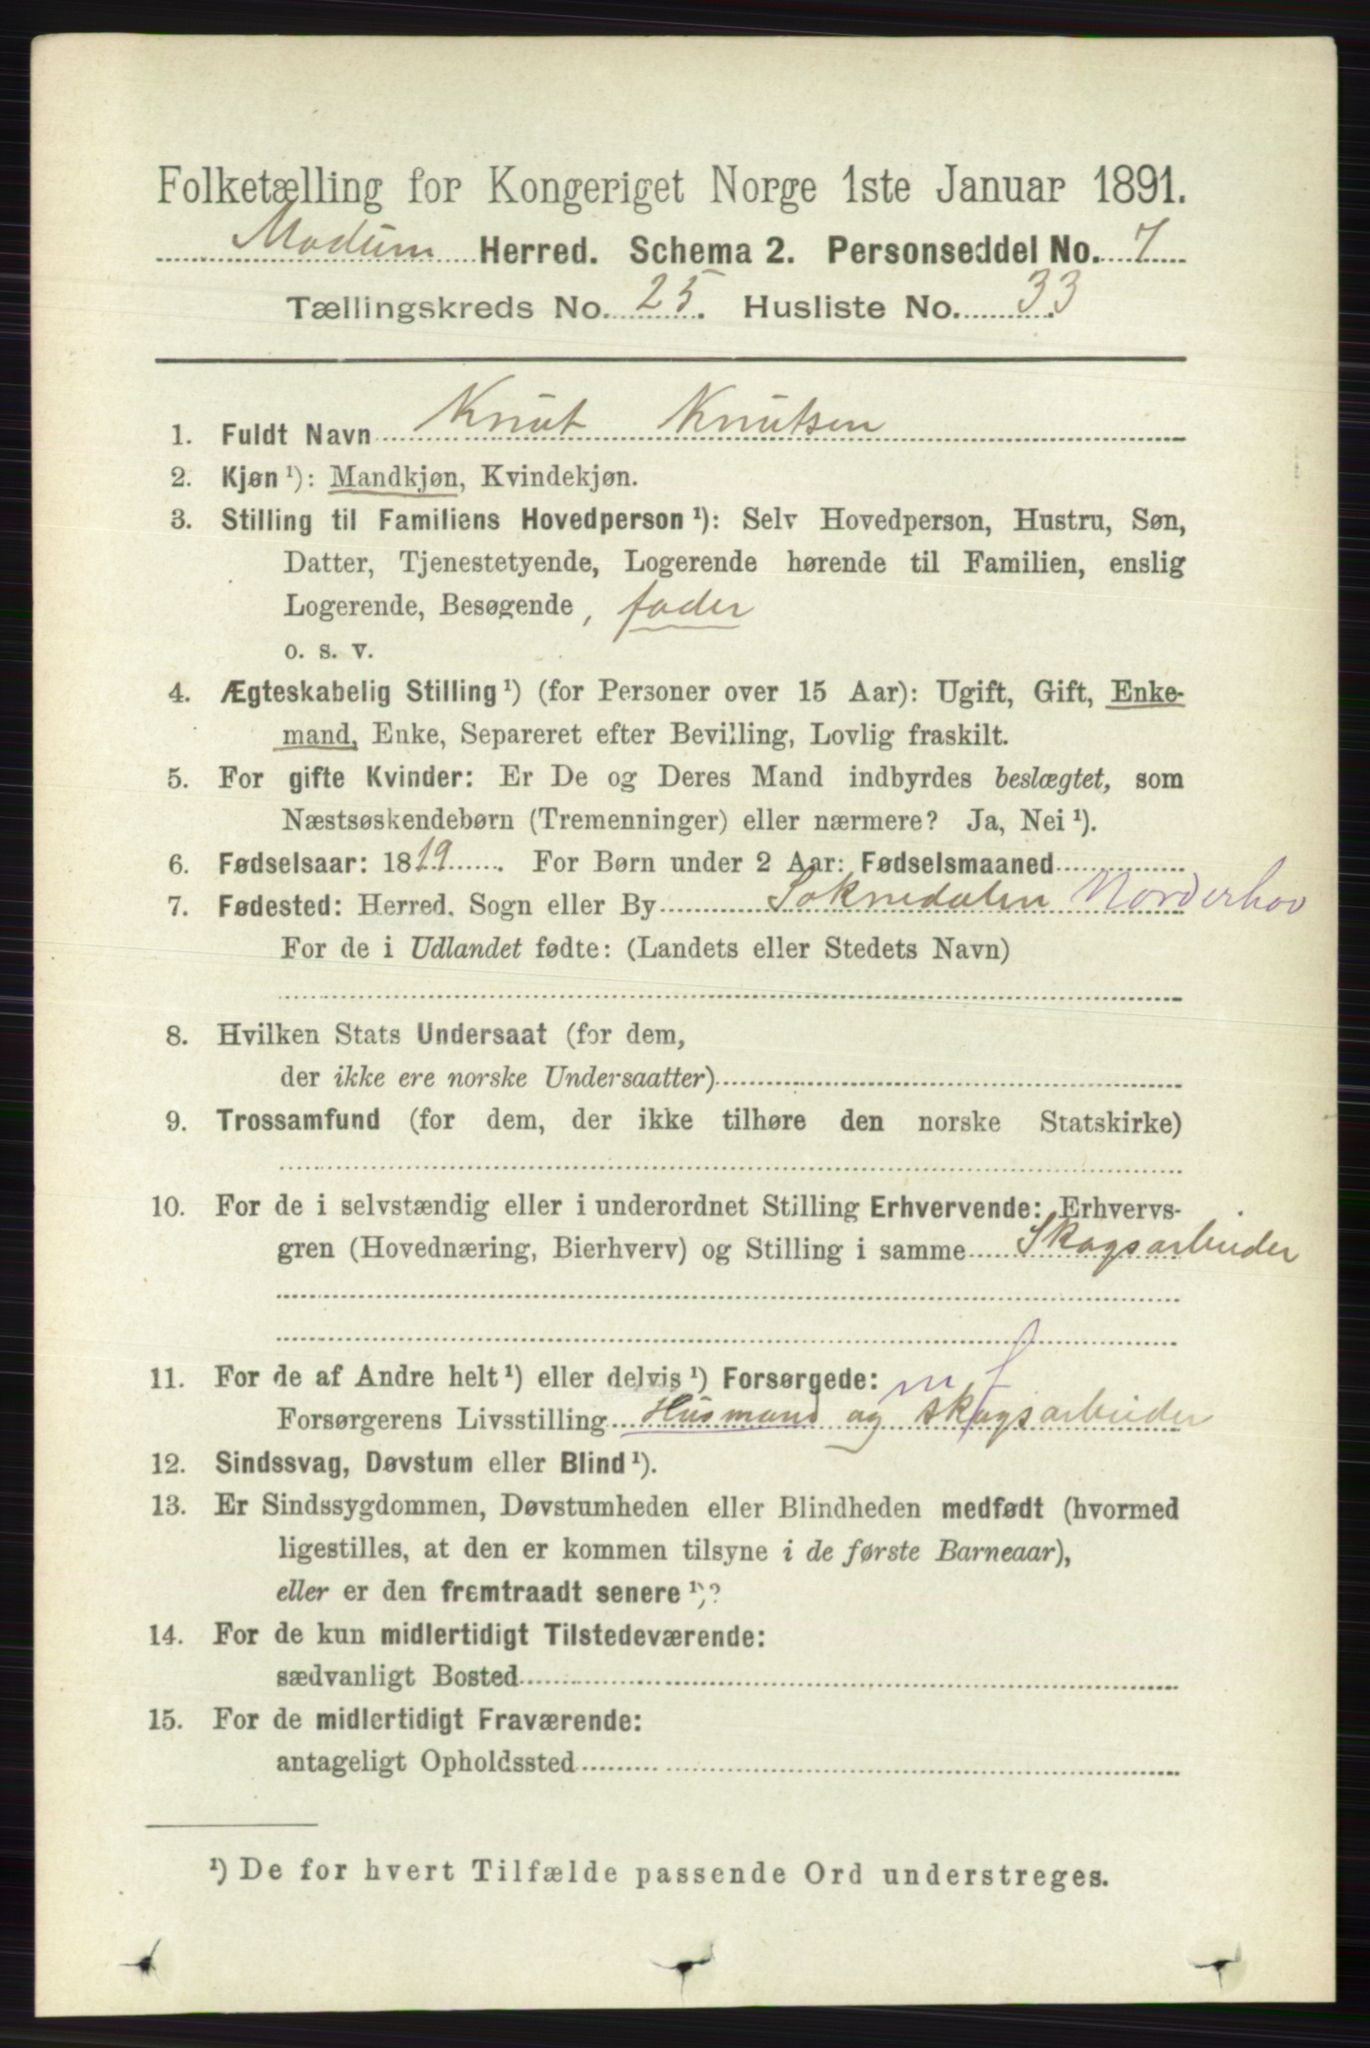 Folketælling for Kongeriget Norge 1ste Januar 1891.
Modum Herred. Schema 2. Personseddel No. 7
Tællingskreds No. 25. Husliste No. 33
1. Fuldt Navn Knut Knutsen
2. Kjøn ¹): Mandkjøn, Kvindekjøn.
3. Stilling til Familiens Hovedperson ¹): Selv Hovedperson, Hustru, Søn,
Datter, Tjenestetyende, Logerende hørende til Familien, enslig
Logerende, Besøgende, fader
o. s. v.
4. Ægteskabelig Stilling ¹) (for Personer over 15 Aar): Ugift, Gift, Enke-
mand, Enke, Separeret efter Bevilling, Lovlig fraskilt.
5. For gifte Kvinder: Er De og Deres Mand indbyrdes beslægtet, som
Næstsøskendebørn (Tremenninger) eller nærmere? Ja, Nei ¹).
6. Fødselsaar: 1819. For Børn under 2 Aar: Fødselsmaaned
7. Fødested: Herred, Sogn eller By Soknedalen Norderhov
For de i Udlandet fødte: (Landets eller Stedets Navn)
8. Hvilken Stats Undersaat (for dem,
der ikke ere norske Undersaatter)
9. Trossamfund (for dem, der ikke tilhøre den norske Statskirke)
10. For de i selvstændig eller i underordnet Stilling Erhvervende: Erhvervs-
gren (Hovednæring, Bierhverv) og Stilling i samme Skogsarbeider
11. For de af Andre helt ¹) eller delvis ¹) Forsørgede: m f
Forsørgerens Livsstilling Husmand og skogsarbeider
12. Sindssvag, Døvstum eller Blind ¹).
13. Er Sindssygdommen, Døvstumheden eller Blindheden medfødt (hvormed
ligestilles, at den er kommen tilsyne i de første Barneaar),
eller er den fremtraadt senere ¹)?
14. For de kun midlertidigt Tilstedeværende:
sædvanligt Bosted
15. For de midlertidigt Fraværende:
antageligt Opholdssted
¹) De for hvert Tilfælde passende Ord understreges.